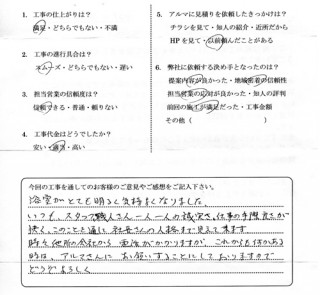 1. 工事の仕上がりは？
満足・どちらでもない・不満
2. 工事の進行具合は？
スムーズ・どちらでもない・遅い
3. 担当営業の信頼度は？
信頼できる・普通・頼りない
4. 工事代金はどうでしたか？
安い・適当・高い
5. アルマに見積りを依頼したきっかけは？
チラシを見て・知人の紹介・近所だから
HPを見て・以前頼んだことがある
6. 弊社に依頼する決め手となったのは？
提案内容が良かった・地域密着の信頼性
担当営業の応対が良かった・知人の評判
前回の施工が満足だった・工事金額
その他（　　　）
今回の工事を通してのお客様のご意見やご感想をご記入下さい。
浴室がとても明るく気持よくなりました
いつも、スタッフ職人さん一人一人の誠実さ、仕事の手際良さが
快く、このことを通し社長さんの人格まで見えて来ます
時々他所の会社から電話がかかりますが、これからも何かある
時は、アルマさんにお願いすることにしておりますので
どうぞよろしく